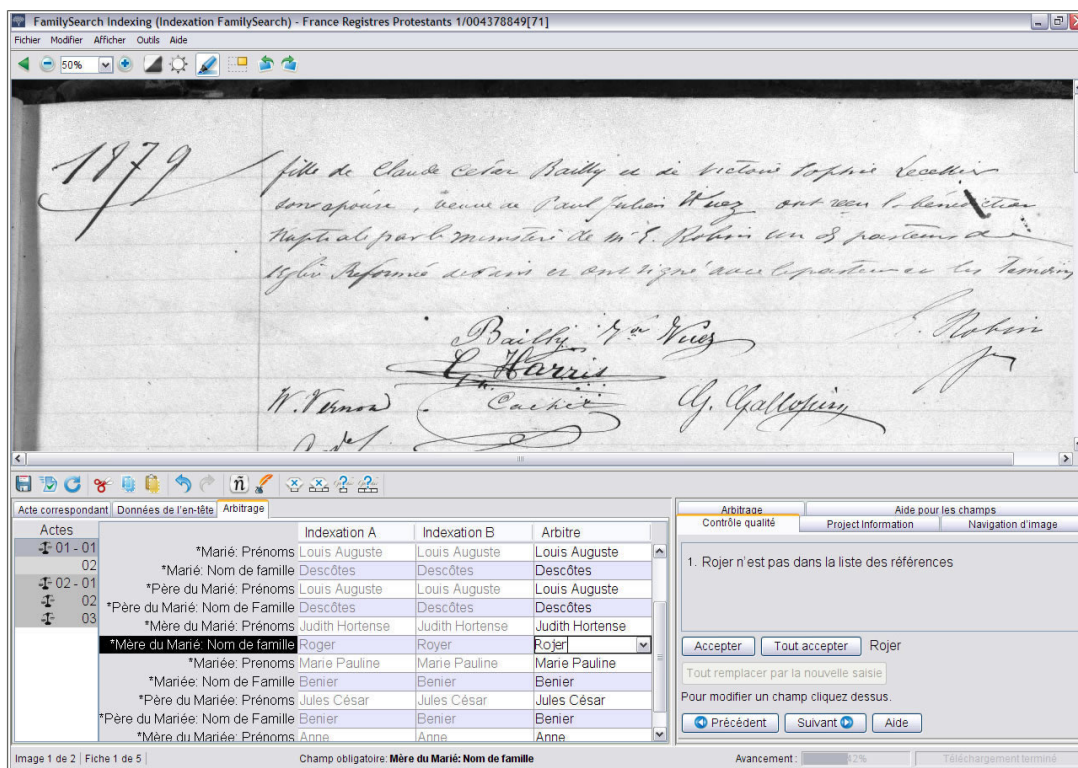 FamilySearch Indexing (Indexation FamilySearch) - France Registres Protestants 1/004378849[71]
Fichier Modifier Afficher Outils Aide
50%
1879
fille de Claude César Bailly et de Victoire Sophie Lecellier
son épouse, veuve de Paul Julien Wuez ont reçu la bénédiction
nuptiale par le ministère de Mr E. Robin un des pasteurs de
Eglise Reformée de et ont signé avec le pasteur et les Temoins
Bailly Vve Wuez
E. Robin
G. Harris
W. Vernon
Cachet
G. Gallopin
Acte correspondant Données de l'en-tête Arbitrage
Actes
01 - 01
02
02 - 01
02
03
Indexation A Indexation B Arbitre
*Marié: Prénoms Louis Auguste Louis Auguste Louis Auguste
*Marié: Nom de famille Descôtes Descôtes Descôtes
*Père du Marié: Prénoms Louis Auguste Louis Auguste Louis Auguste
*Père du Marié: Nom de Famille Descôtes Descôtes Descôtes
*Mère du Marié: Prénoms Judith Hortense Judith Hortense Judith Hortense
*Mère du Marié: Nom de famille Roger Royer Rojer
*Mariée: Prenoms Marie Pauline Marie Pauline Marie Pauline
*Mariée: Nom de famille Benier Benier Benier
*Père du Mariée: Prénoms Jules César Jules César Jules César
*Père du Mariée: Nom de Famille Benier Benier Benier
*Mère du Mariée: Prénoms Anne Anne Anne
Arbitrage Aide pour les champs
Contrôle qualité Project Information Navigation d'image
1. Rojer n'est pas dans la liste des références
Accepter Tout accepter Rojer
Tout remplacer par la nouvelle saisie
Pour modifier un champ cliquez dessus.
Précédent Suivant Aide
Image 1 de 2 Fiche 1 de 5 Champ obligatoire: Mère du Marié: Nom de famille Avancement : 42% Téléchargement terminé